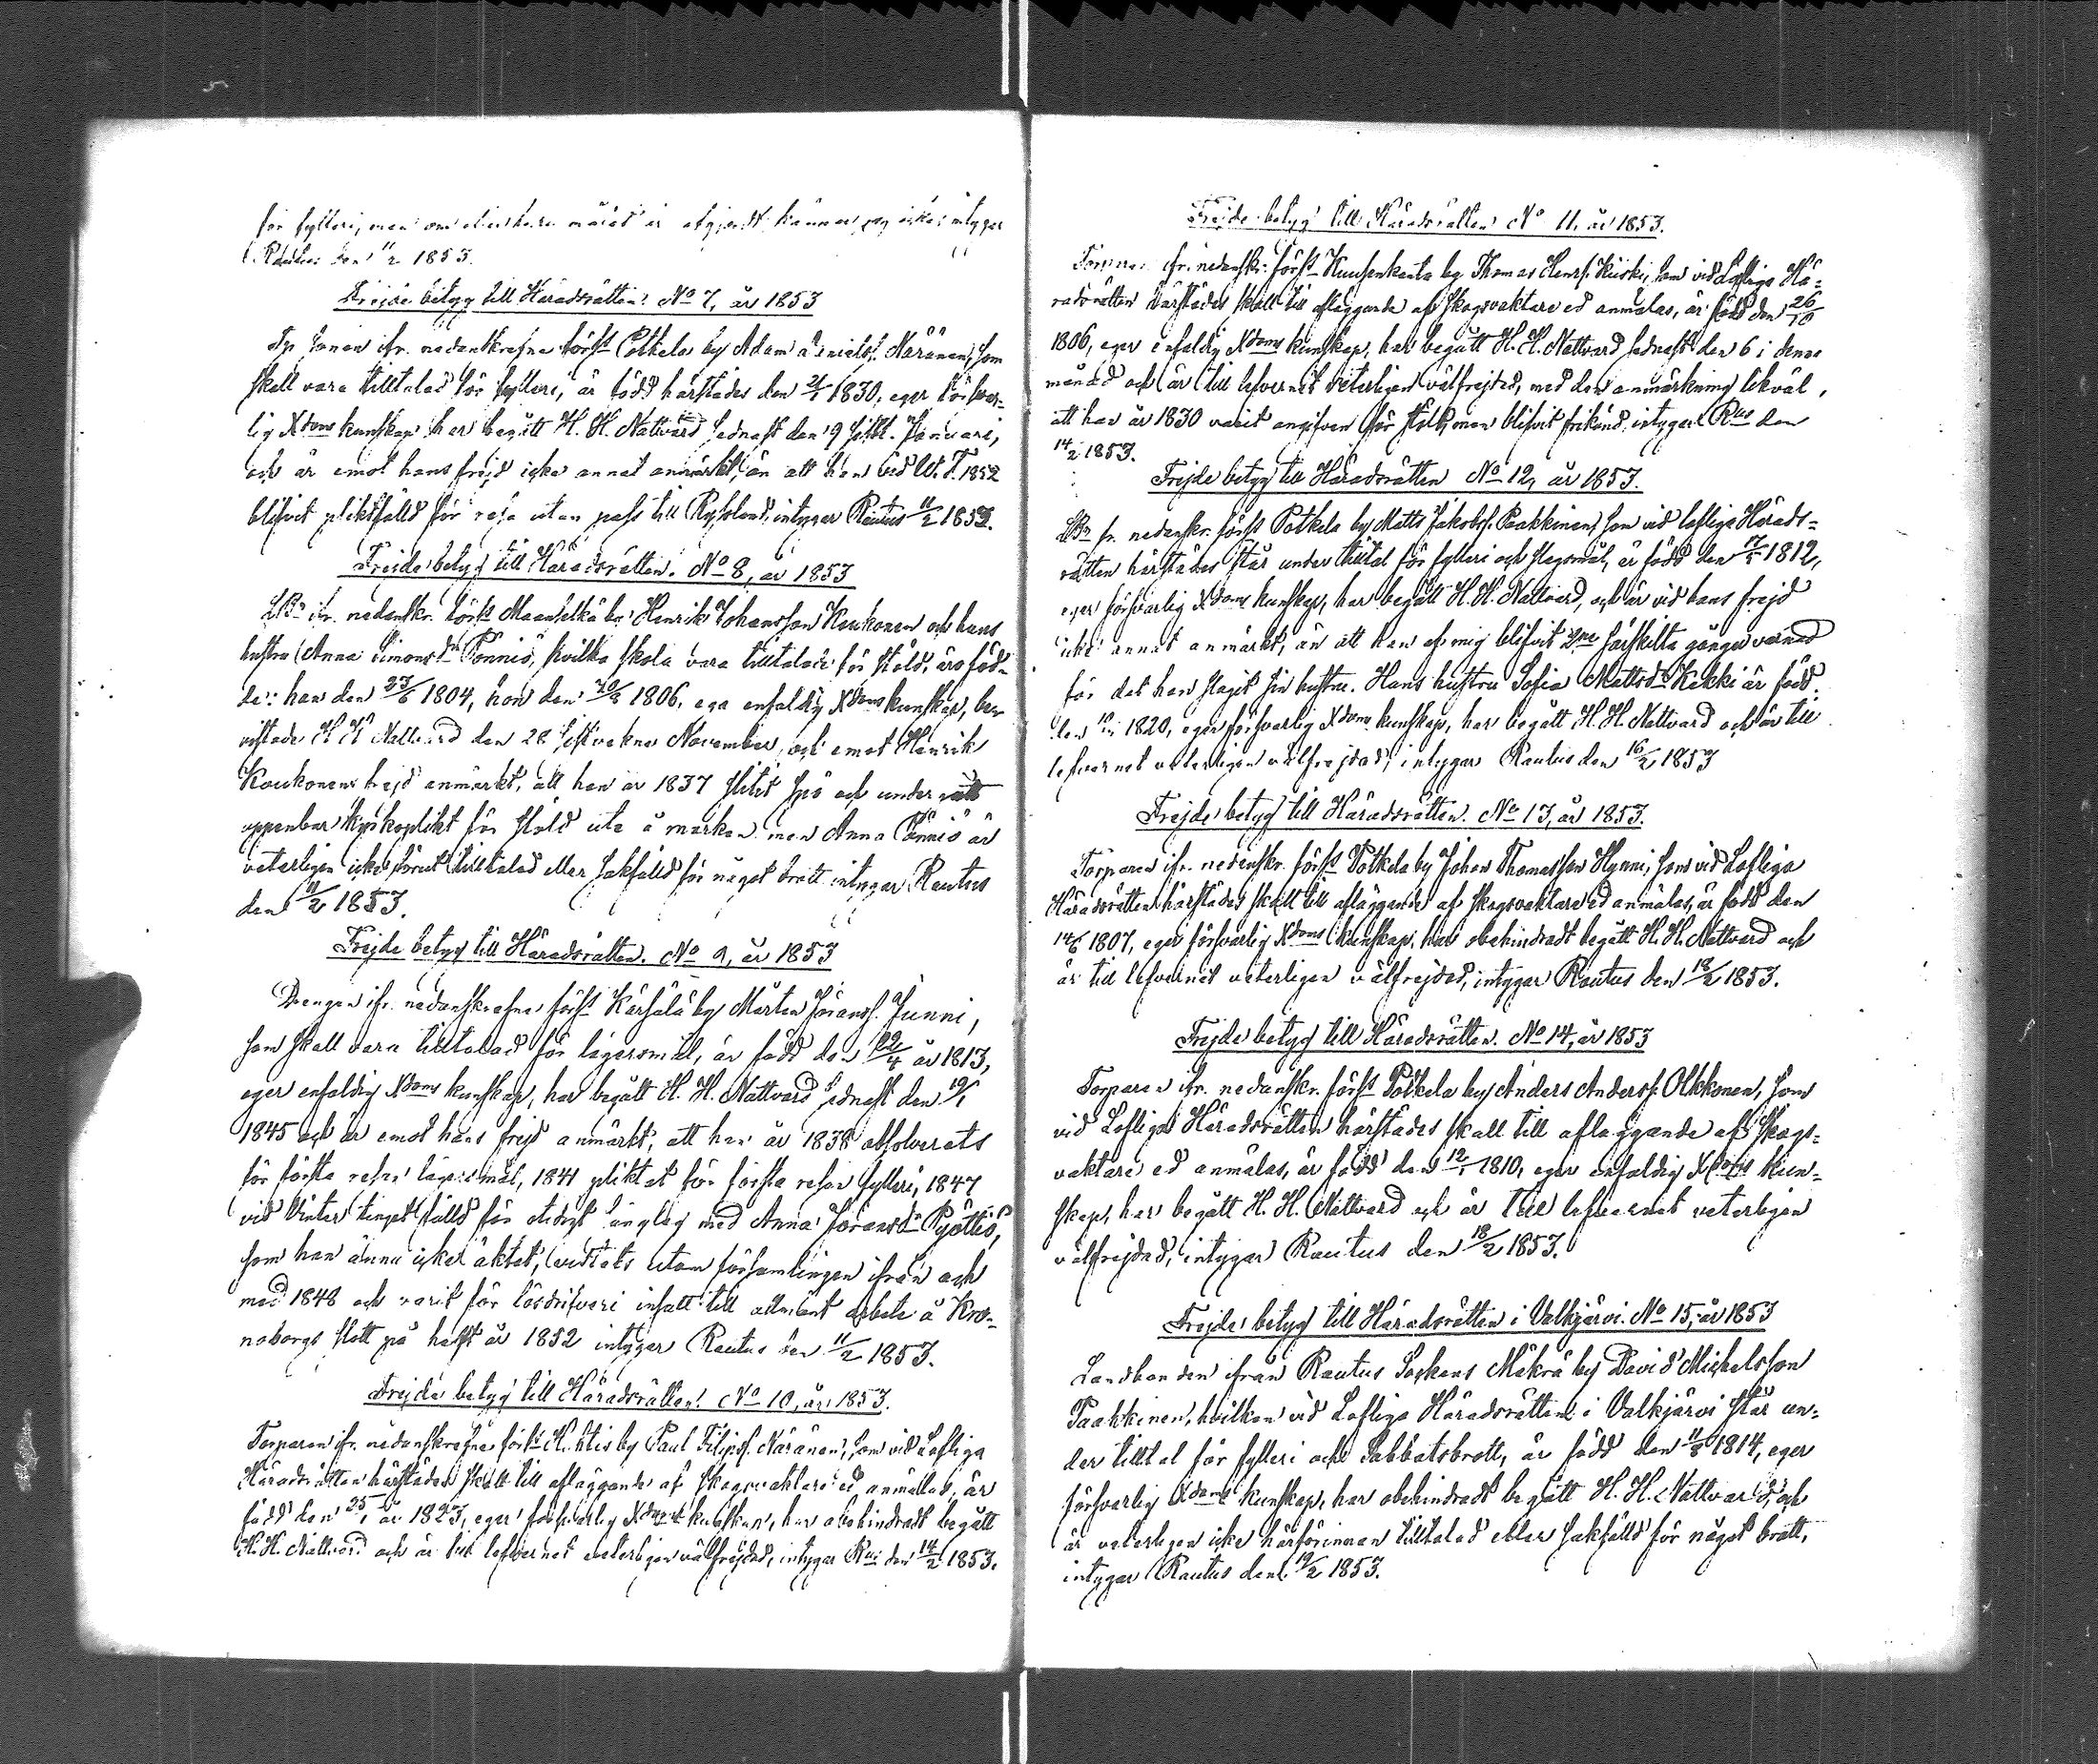 för fylleri, men om målet är afgjordt känner jag icke, intygar
Rautus den 11/2 1853.
Frejde betyg till Häradsrätten. No 7, år 1853
ifr. nedanskrefne förs. Potkela by Adam Näränen, som
skall vara tilltalad för fylleri, är född härstädes den 1830, eger försvar-
lig Xdoms kunskap har begått H. H. Nattvard sednast den 9 sistl. Januari,
och är emot hans frejd icke annat anmärkt, än att han vid W. T. 1852
blifvit pliktfälld för resa utan pass till Ryssland, intygar Rautus 11/2 1853.
Frejde betyg till Häradsrätten. No 8, år 1853
ifr. nedanskr. förs. Maanselkä by Henrik Johansson Koukonen och hans
hustru Anna Simonsdr Pönniö, hvilka skola vara tilltalade för stöld, äro föd-
de: han den 27/6 1804, hon den 1806, ega enfaldig Xdoms kunskap, be-
vistade H. H. Nattvard den 28 sistvekne November, och emot Henrik
Koukonens frejd anmärkt, att han år 1837 slitit spö och undergått
uppenbar kyrkoplikt för stöld ute å marken men Anna Pönniö är
veterligen icke förut tilltalad eller sakfälld för något brott intygar Rautus
den 11/2 1853.
Frejde betyg till Häradsrätten. No 9, år 1853
Drengen ifr. nedanskrefne förs. Kärsälä by Mårten Göransf. Junni,
som skall vara tilltalad för lägersmål, är född den 22/4 år 1813,
eger enfaldig Xdoms kunskap, har begått H. H. Nattvard sednast den 19/1
1845 och är emot hans frejd anmärkt, att han år 1838 absolverats
för första resan lägersmål, 1841 pliktat för första resan fylleri, 1847
vid Vintertinget fälld för otidigt sänglag med Anna Göransdr Pyöttiö,
som han ännu icke äktat, vistats utom församlingen ifrån och
med 1848 och varit för lösdrifveri insatt till allmänt arbete å Kro-
noborgs slott på halft år 1852 intygar Rautus den 11/2 1853.
Frejde betyg till Häradsrätten. No 10, år 1853.
Torparen ifr. nedanskrefne förs. by Paul Filipsf. Näränen, som vid Lofliga
Häradsrätten härstädes skall till afläggande af skogvaktare ed anmälas, är
född den 25 år 1823, eger försvarlig Xdoms kunskap, har obehindradt begått
H. H. Nattvard och är till lefvernet veterligen välfrejdad, intygar Rus den 14/2 1853.
Frejde betyg till Häradsrätten No 11, år 1853.
Torparen ifr. nedanskr. förs. Kuusenkanta by Thomas Henrf. Kiiski, som vid Lofliga Hä-
radsrätten härstädes skall till afläggande af skogsvaktare ed anmälas, är född den 26/10
1806, eger enfaldig Xdoms kunskap, har begått H. H. Nattvard sednast den 6 i denne
månad och är till lefvernet veterligen välfrejdad, med den anmärkning likväl,
att han år 1830 varit angifven för stöld, men blifvit frikänd, intygar Rus den
14/2 1853.
Frejde betyg till Häradsrätten No 12, år 1853.
fr. nedanskr. förs. Potkela by Matts Jakobsf. Paakkinen, som vid lofliga Härads-
rätten härstädes står under tilltal för fylleri och slagsmål, är född den 1812,
eger försvarlig Xdoms kunskap, har begått H. H. Nattvard, och är vid hans frejd
icke annat anmärkt, än att han af mig blifvit 2ne särskilta gånger varnad
för det han slagit sin hustru. Hans hustru Sofia Mattsdr Kekki är född
den 1820, eger försvarlig Xdoms kunskap, har begått H. H. Nattvard och är till
lefvernet veterligen välfrejdad, intygar Rautus den 16/2 1853
Frejde betyg till Häradsrätten. No 13, år 1853.
Torparen ifr. nedanskr. förs. Potkela by Johan Thomasson Hynni, som vid Lofliga
Häradsrätten härstädes skall till afläggande af skogsvaktare ed anmälas, är född den
14/6 1807, eger försvarlig Xdoms kunskap, har obehindradt begått H. H. Nattvard och
är till lefvernet veterligen välfrejdad, intygar Rautus den 18/2 1853.
Frejde betyg till Häradsrätten. No 14, år 1853
Torparen ifr. nedanskr. förs. Potkela by Anders Andersf. Olkkonen, som
vid Lofliga Häradsrätten härstädes skall till afläggande af skogs-
vaktare ed anmälas, är född den 12/1 1810, eger enfaldig Xdoms kun-
skap, har begått H. H. Nattvard och är till lefvernet veterligen
välfrejdad, intygar Rautus den 18/2 1853.
Frejde betyg till Häradsrätten i Valkjärvi. No 15, år 1853
Landbonden ifrån Rautus Sockens Mäkrä by David Michelsson
Paakkinen, hvilken vid Lofliga Häradsrätten i Valkjärvi står un-
der tilltal för fylleri och Sabbatsbrott, är född den 11/8 1814, eger
försvarlig Xdoms kunskap, har obehindradt begått H. H. Nattvard, och
är veterligen icke härförinnan tilltalad eller sakfälld för något brott,
intygar Rautus den 19/2 1853.